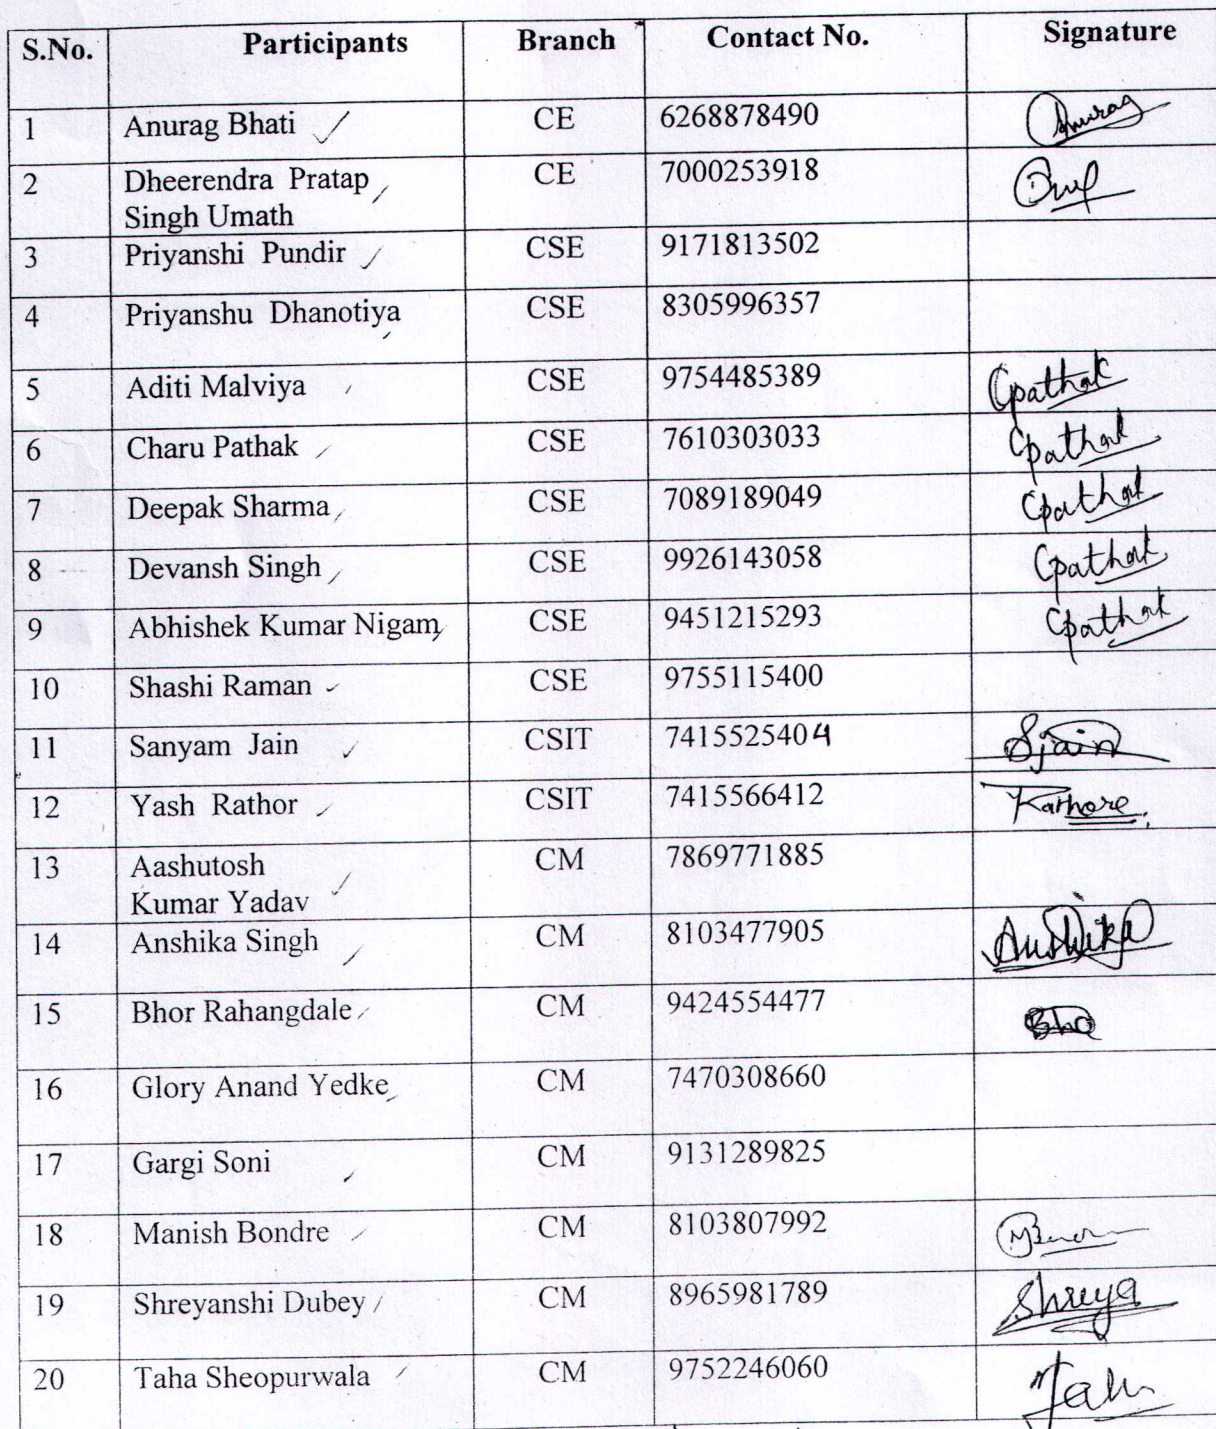 S.No. Participants Branch Contact No. Signature
1 Anurag Bhati CE 6268878490 Anurag
2 Dheerendra Pratap CE 7000253918
Singh Umath
3 Priyanshi Pundir CSE 9171813502
4 Priyanshu Dhanotiya CSE 8305996357
5 Aditi Malviya CSE 9754485389 Cpathak
6 Charu Pathak CSE 7610303033 Cpathak
7 Deepak Sharma CSE 7089189049 Cpathak
8 Devansh Singh CSE 9926143058 Cpathak
9 Abhishek Kumar Nigam CSE 9451215293 Cpathak
10 Shashi Raman CSE 9755115400
11 Sanyam Jain CSIT 7415525404 Sjain
12 Yash Rathor CSIT 7415566412 Rathore
13 Aashutosh CM 7869771885
Kumar Yadav
14 Anshika Singh CM 8103477905 Anshika
15 Bhor Rahangdale CM 9424554477 Bho
16 Glory Anand Yedke CM 7470308660
17 Gargi Soni CM 9131289825
18 Manish Bondre CM 8103807992
19 Shreyanshi Dubey CM 8965981789 Shreya
20 Taha Sheopurwala CM 9752246060